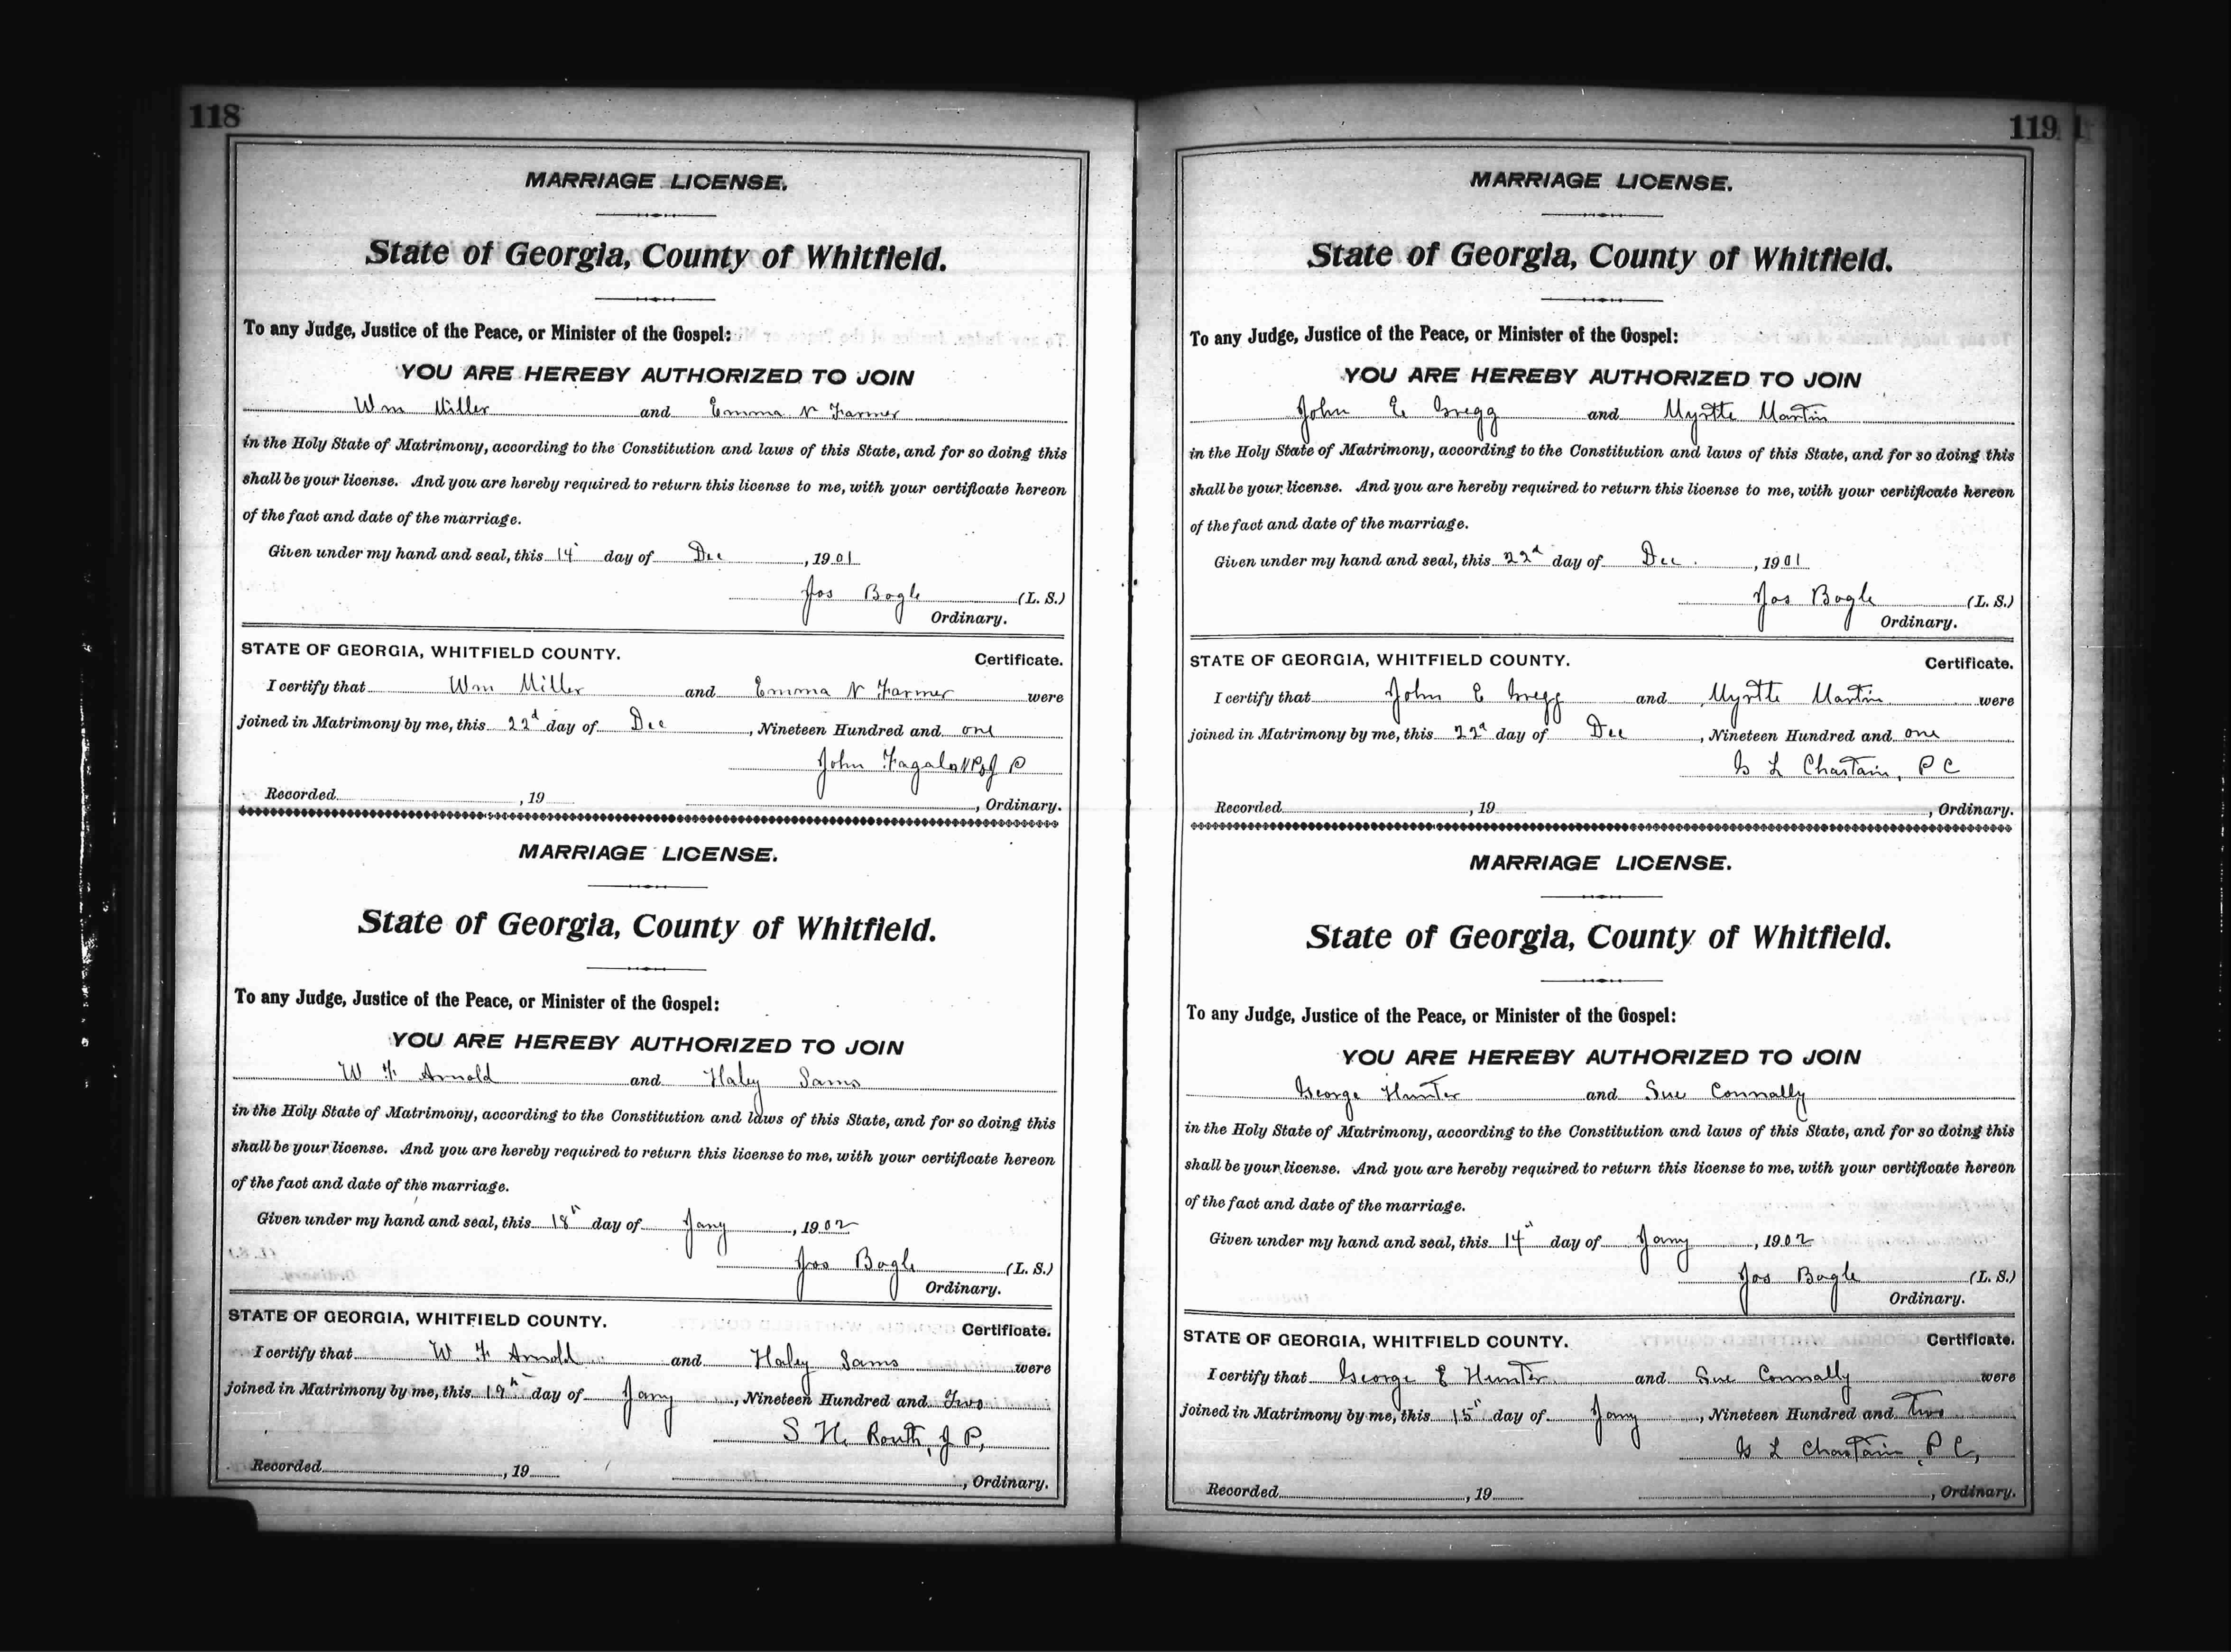 118
MARRIAGE LICENSE.
State of Georgia, County of Whitfield.
To any Judge, Justice of the Peace, or Minister of the Gospel:
YOU ARE HEREBY AUTHORIZED TO JOIN
Wm Miller and Emma N Farmer
in the Holy State of Matrimony, according to the Constitution and laws of this State, and for so doing this
shall be your license. And you are hereby required to return this license to me, with your certificate hereon
of the fact and date of the marriage.
Given under my hand and seal, this 14 day of Dec, 1901
Jos Bogle (L. S.)
Ordinary.
STATE OF GEORGIA, WHITFIELD COUNTY. Certificate.
I certify that Wm Miller and Emma N Farmer were
joined in Matrimony by me, this 22d day of Dec, Nineteen Hundred and one
John J P
Recorded, 19 , Ordinary.
MARRIAGE LICENSE.
State of Georgia, County of Whitfield.
To any Judge, Justice of the Peace, or Minister of the Gospel:
YOU ARE HEREBY AUTHORIZED TO JOIN
W F Arnold and Haley Sams
in the Holy State of Matrimony, according to the Constitution and laws of this State, and for so doing this
shall be your license. And you are hereby required to return this license to me, with your certificate hereon
of the fact and date of the marriage.
Given under my hand and seal, this 18h day of Jany, 1902
Jos Bogle (L. S.)
Ordinary.
STATE OF GEORGIA, WHITFIELD COUNTY. Certificate.
I certify that W F Arnold and Haley Sams were
joined in Matrimony by me, this 19h day of Jany, Nineteen Hundred and Two
S H Routh, J P,
Recorded, 19 , Ordinary.
119
MARRIAGE LICENSE.
State of Georgia, County of Whitfield.
To any Judge, Justice of the Peace, or Minister of the Gospel:
YOU ARE HEREBY AUTHORIZED TO JOIN
John E Gregg and Myrtle Martin
in the Holy State of Matrimony, according to the Constitution and laws of this State, and for so doing this
shall be your license. And you are hereby required to return this license to me, with your certificate hereon
of the fact and date of the marriage.
Given under my hand and seal, this 22d day of Dec., 1901
Jos Bogle (L. S.)
Ordinary.
STATE OF GEORGIA, WHITFIELD COUNTY. Certificate.
I certify that John E Gregg and Myrtle Martin were
joined in Matrimony by me, this 22d day of Dec, Nineteen Hundred and one
G L Chastain, P C
Recorded, 19 , Ordinary.
MARRIAGE LICENSE.
State of Georgia, County of Whitfield.
To any Judge, Justice of the Peace, or Minister of the Gospel:
YOU ARE HEREBY AUTHORIZED TO JOIN
George Hunter and Sue Connally
in the Holy State of Matrimony, according to the Constitution and laws of this State, and for so doing this
shall be your license. And you are hereby required to return this license to me, with your certificate hereon
of the fact and date of the marriage.
Given under my hand and seal, this 14 day of Jany, 1902
Jos Bogle (L. S.)
Ordinary.
STATE OF GEORGIA, WHITFIELD COUNTY. Certificate.
I certify that George E Hunter and Sue Connally were
joined in Matrimony by me, this 15 day of Jany, Nineteen Hundred and Two
G L Chastain, P C,
Recorded, 19 , Ordinary.